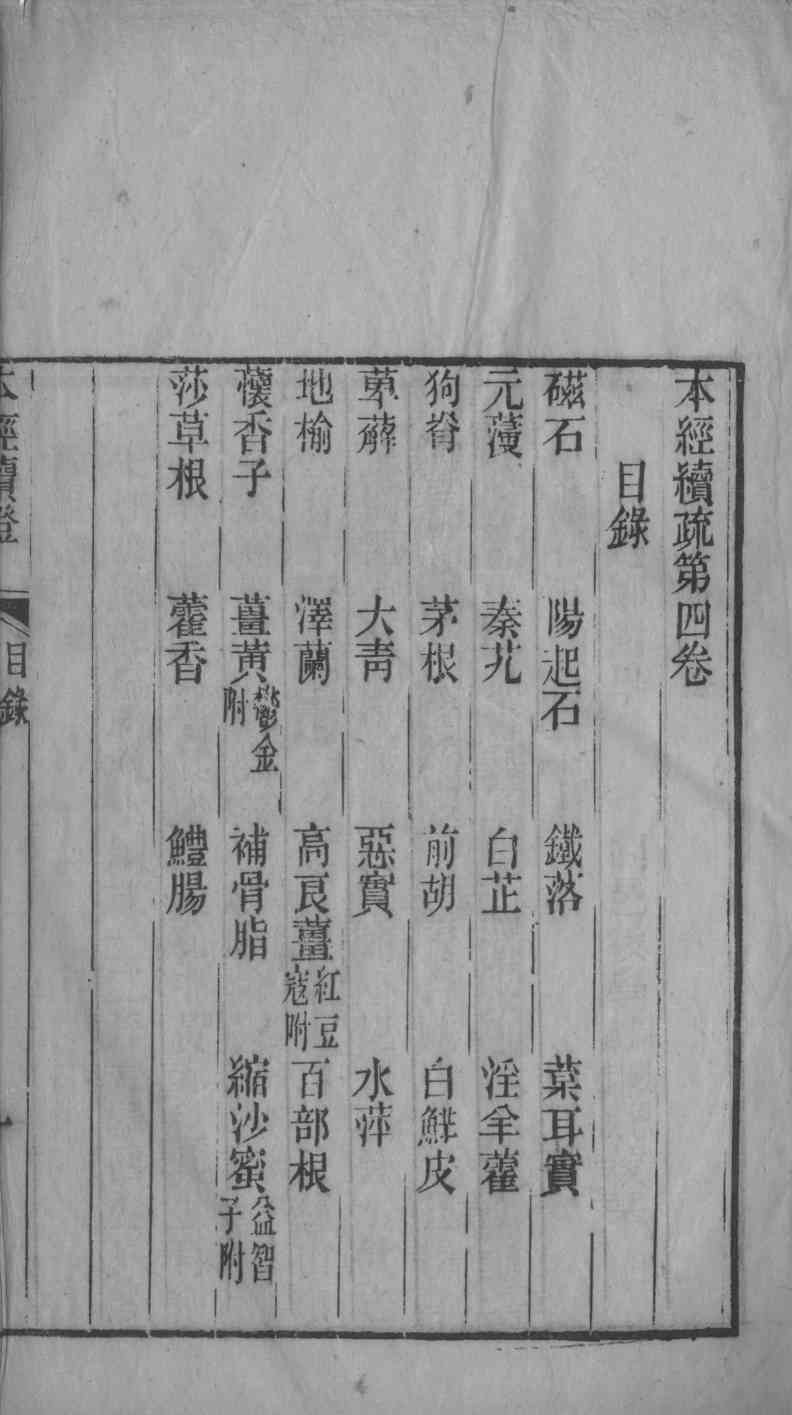 本經續疏第四卷
目錄
磁石 陽起石 鐵落 葈耳實
元葠 秦艽 白芷 淫羊藿
狗脊 茅根 前胡 白鮮皮
萆薢 大青 惡實 水萍
地榆 澤蘭 高良薑紅豆蔻附 百部根
蘹香子 薑黃鬱金附 補骨脂 縮沙蜜益智子附
莎草根 藿香 鱧腸
本經續證 目錄 一